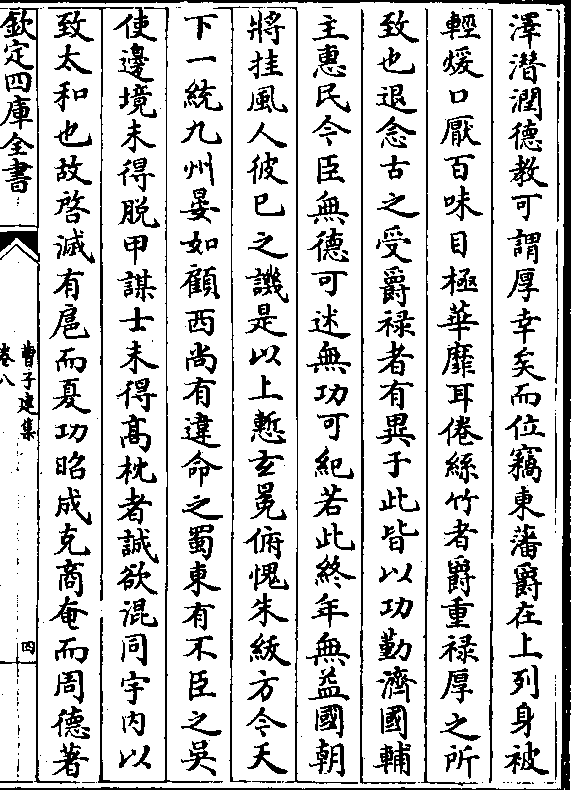 澤潜潤德教可謂厚幸矣而位竊東藩爵在上列身被
輕煖口厭百味目極華靡耳倦絲竹者爵重禄厚之所
致也退念古之受爵禄者有異于此皆以功勤濟國輔
主惠民今臣無德可述無功可紀若此終年無益國朝
將挂風人彼已之譏是以上慙玄冕俯愧朱紱方今天
下一統九州晏如顧西尚有違命之蜀東有不臣之吳
使邊境未得脱甲謀士未得髙枕者誠欲混同宇内以
致太和也故啓滅有扈而夏功昭成克商奄而周德著
欽定四庫全書
曹子建集
卷八
四